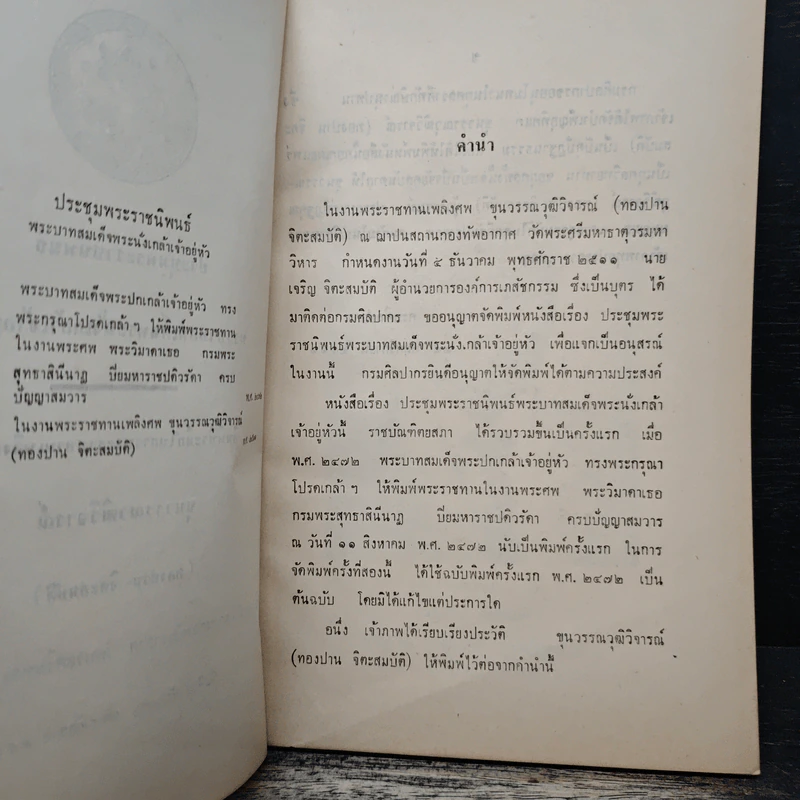 ประชุมพระราชนิพนธ์
พระบาทสมเด็จพระนั่งเกล้าเจ้าอยู่หัว
พระบาทสมเด็จพระปกเกล้าเจ้าอยู่หัว ทรง
พระกรุณาโปรดเกล้า ฯ ให้พิมพ์พระราชทาน
ในงานพระศพ พระวิมาดาเธอ กรมพระ
สุทธาสินีนาฏ ปิยมหาราชปดิวรัดา ครบ
ปัญญาสมวาร
ในงานพระราชทานเพลิงศพ ขุนวรรณวุฒิวิจารณ์
(ทองปาน จิตะสมบัติ)
คำนำ
ในงานพระราชทานเพลิงศพ ขุนวรรณวุฒิวิจารณ์ (ทองปาน
จิตะสมบัติ) ณ ฌาปนสถานกองทัพอากาศ วัดพระศรีมหาธาตุวรมหา
วิหาร กำหนดงานวันที่ ๔ ธันวาคม พุทธศักราช ๒๕๑๑ นาย
เจริญ จิตะสมบัติ ผู้อำนวยการองค์การเภสัชกรรม ซึ่งเป็นบุตร ได้
มาติดต่อกรมศิลปากร ขออนุญาตจัดพิมพ์หนังสือเรื่อง ประชุมพระ
ราชนิพนธ์พระบาทสมเด็จพระนั่งเกล้าเจ้าอยู่หัว เพื่อแจกเป็นอนุสรณ์
ในงานนี้ กรมศิลปากรยินดีอนุญาตให้จัดพิมพ์ได้ตามความประสงค์
หนังสือเรื่อง ประชุมพระราชนิพนธ์พระบาทสมเด็จพระนั่งเกล้า
เจ้าอยู่หัวนี้ ราชบัณฑิตยสภา ได้รวบรวมขึ้นเป็นครั้งแรก เมื่อ
พ.ศ. ๒๔๗๒ พระบาทสมเด็จพระปกเกล้าเจ้าอยู่หัว ทรงพระกรุณา
โปรดเกล้า ฯ ให้พิมพ์พระราชทานในงานพระศพ พระวิมาดาเธอ
กรมพระสุทธาสินีนาฏ ปิยมหาราชปดิวรัดา ครบปัญญาสมวาร
ณ วันที่ ๑๑ สิงหาคม พ.ศ. ๒๔๗๒ นับเป็นพิมพ์ครั้งแรก ในการ
จัดพิมพ์ครั้งที่สองนี้ ได้ใช้ฉบับพิมพ์ครั้งแรก พ.ศ. ๒๔๗๒ เป็น
ต้นฉบับ โดยมิได้แก้ไขแต่ประการใด
อนึ่ง เจ้าภาพได้เรียบเรียงประวัติ ขุนวรรณวุฒิวิจารณ์
(ทองปาน จิตะสมบัติ) ให้พิมพ์ไว้ต่อจากคำนำนี้